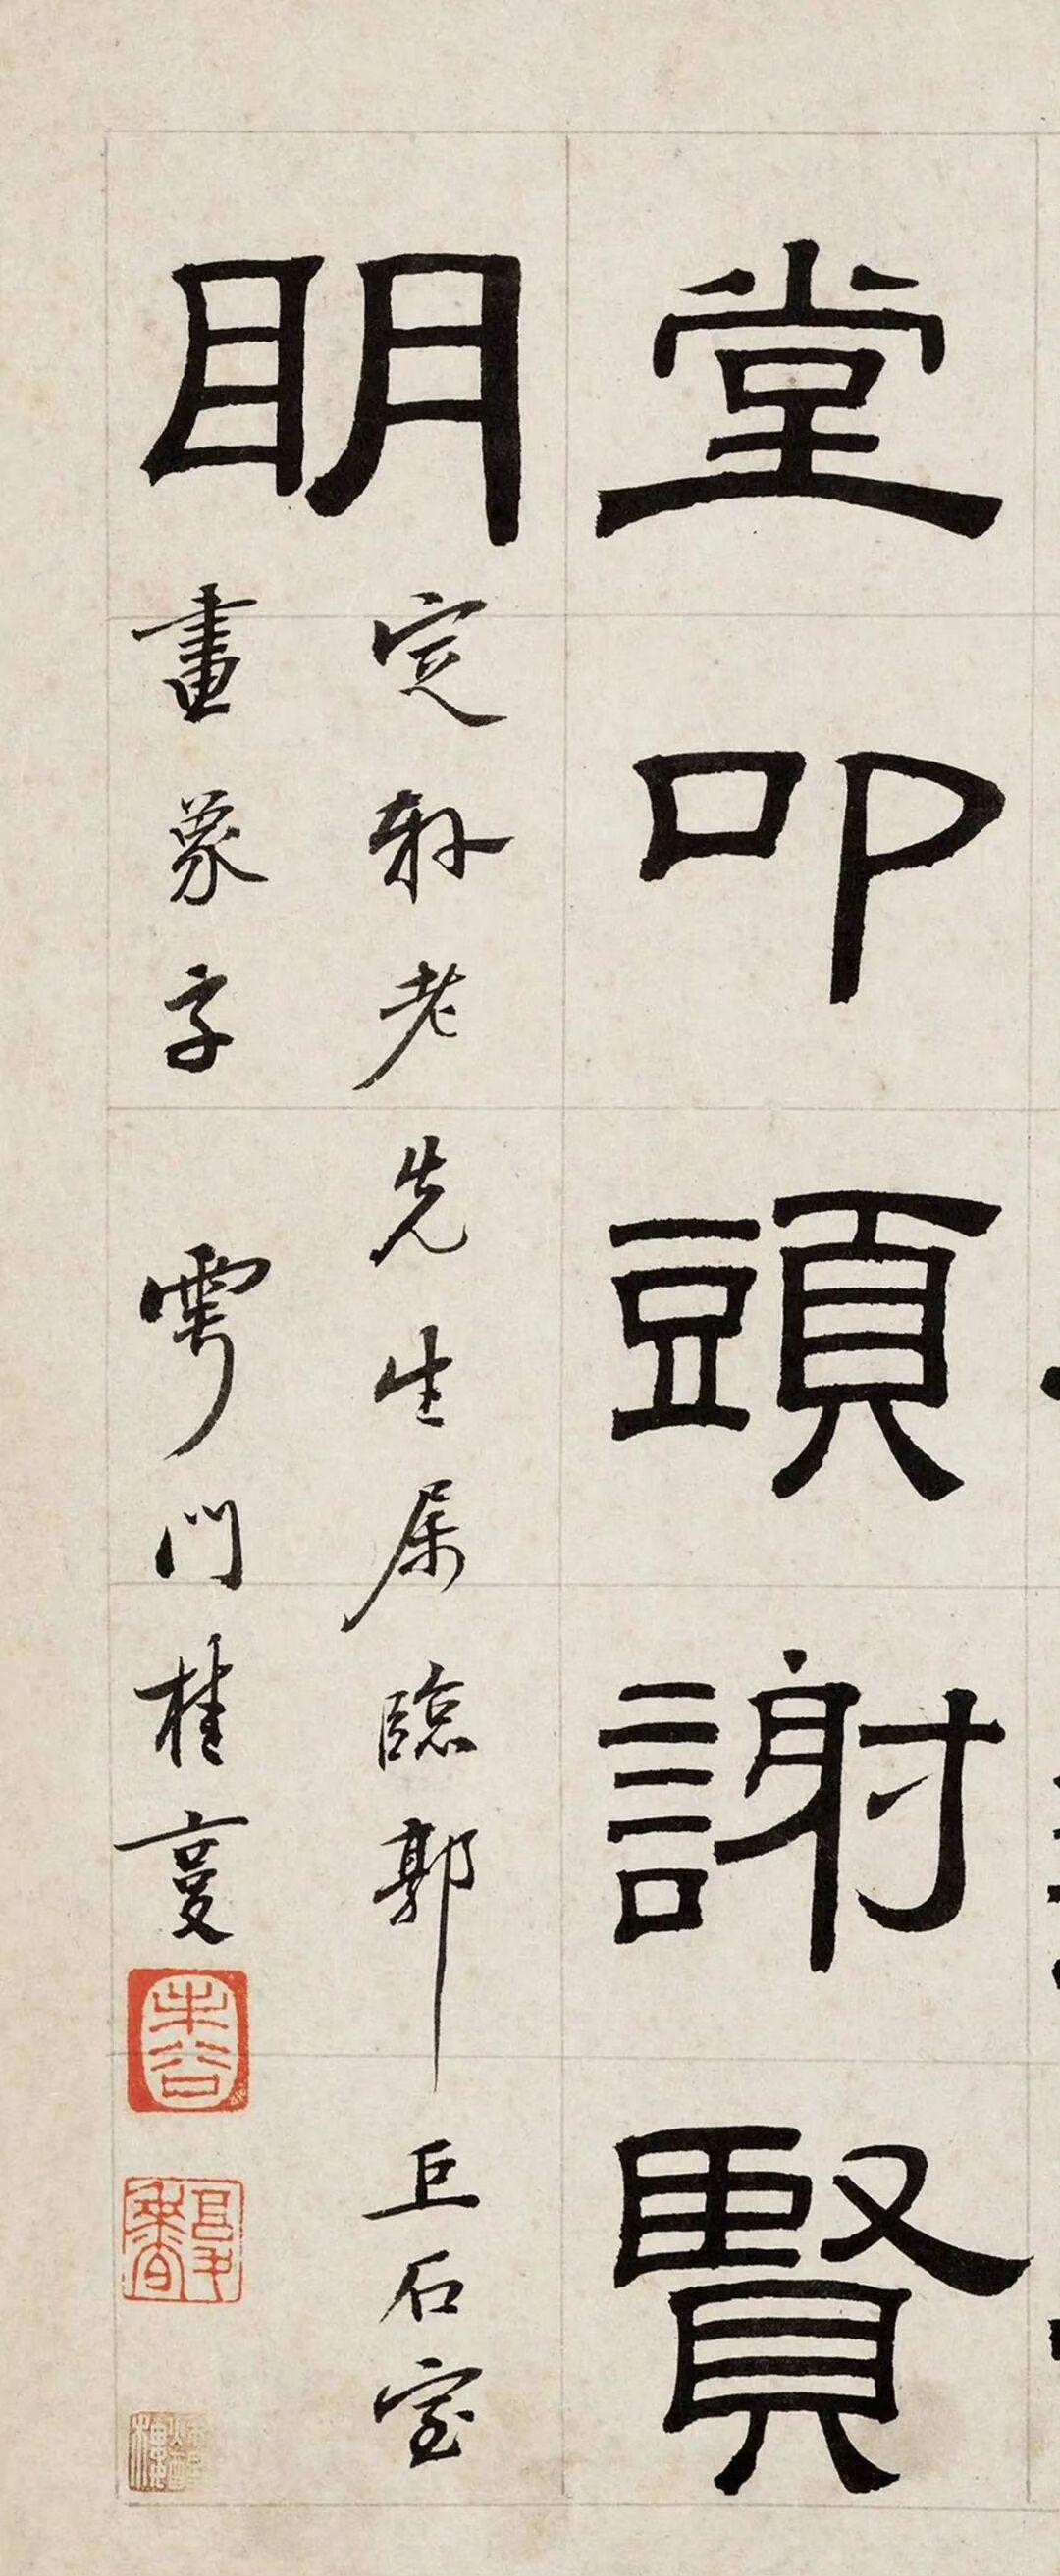 堂叩頭謝賢
明
定軒老先生属臨郭巨石室
畫象字 雩門桂馥